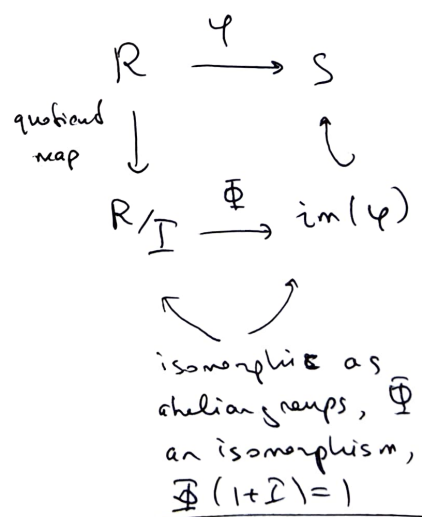 φ
R → S
quotient
map
R/I Φ im(φ)
isomorphic as
abelian groups, Φ
an isomorphism,
Φ(1+I)=1